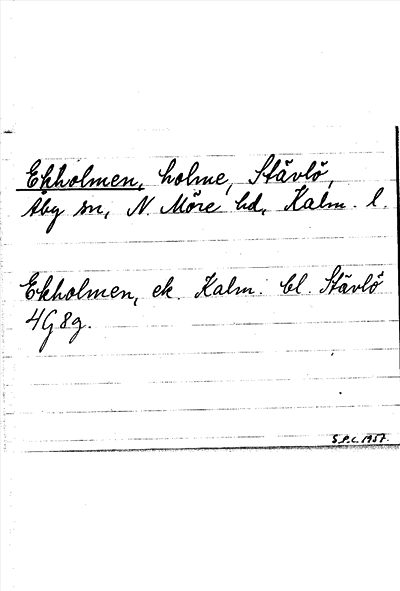 Ekholmen, holme, Stävlö,
Åby sn, N. Möre hd, Kalm. l.
Ekholmen, ek. Kalm. bl. Stävlö
4G8g.
S.P.C. 1957.